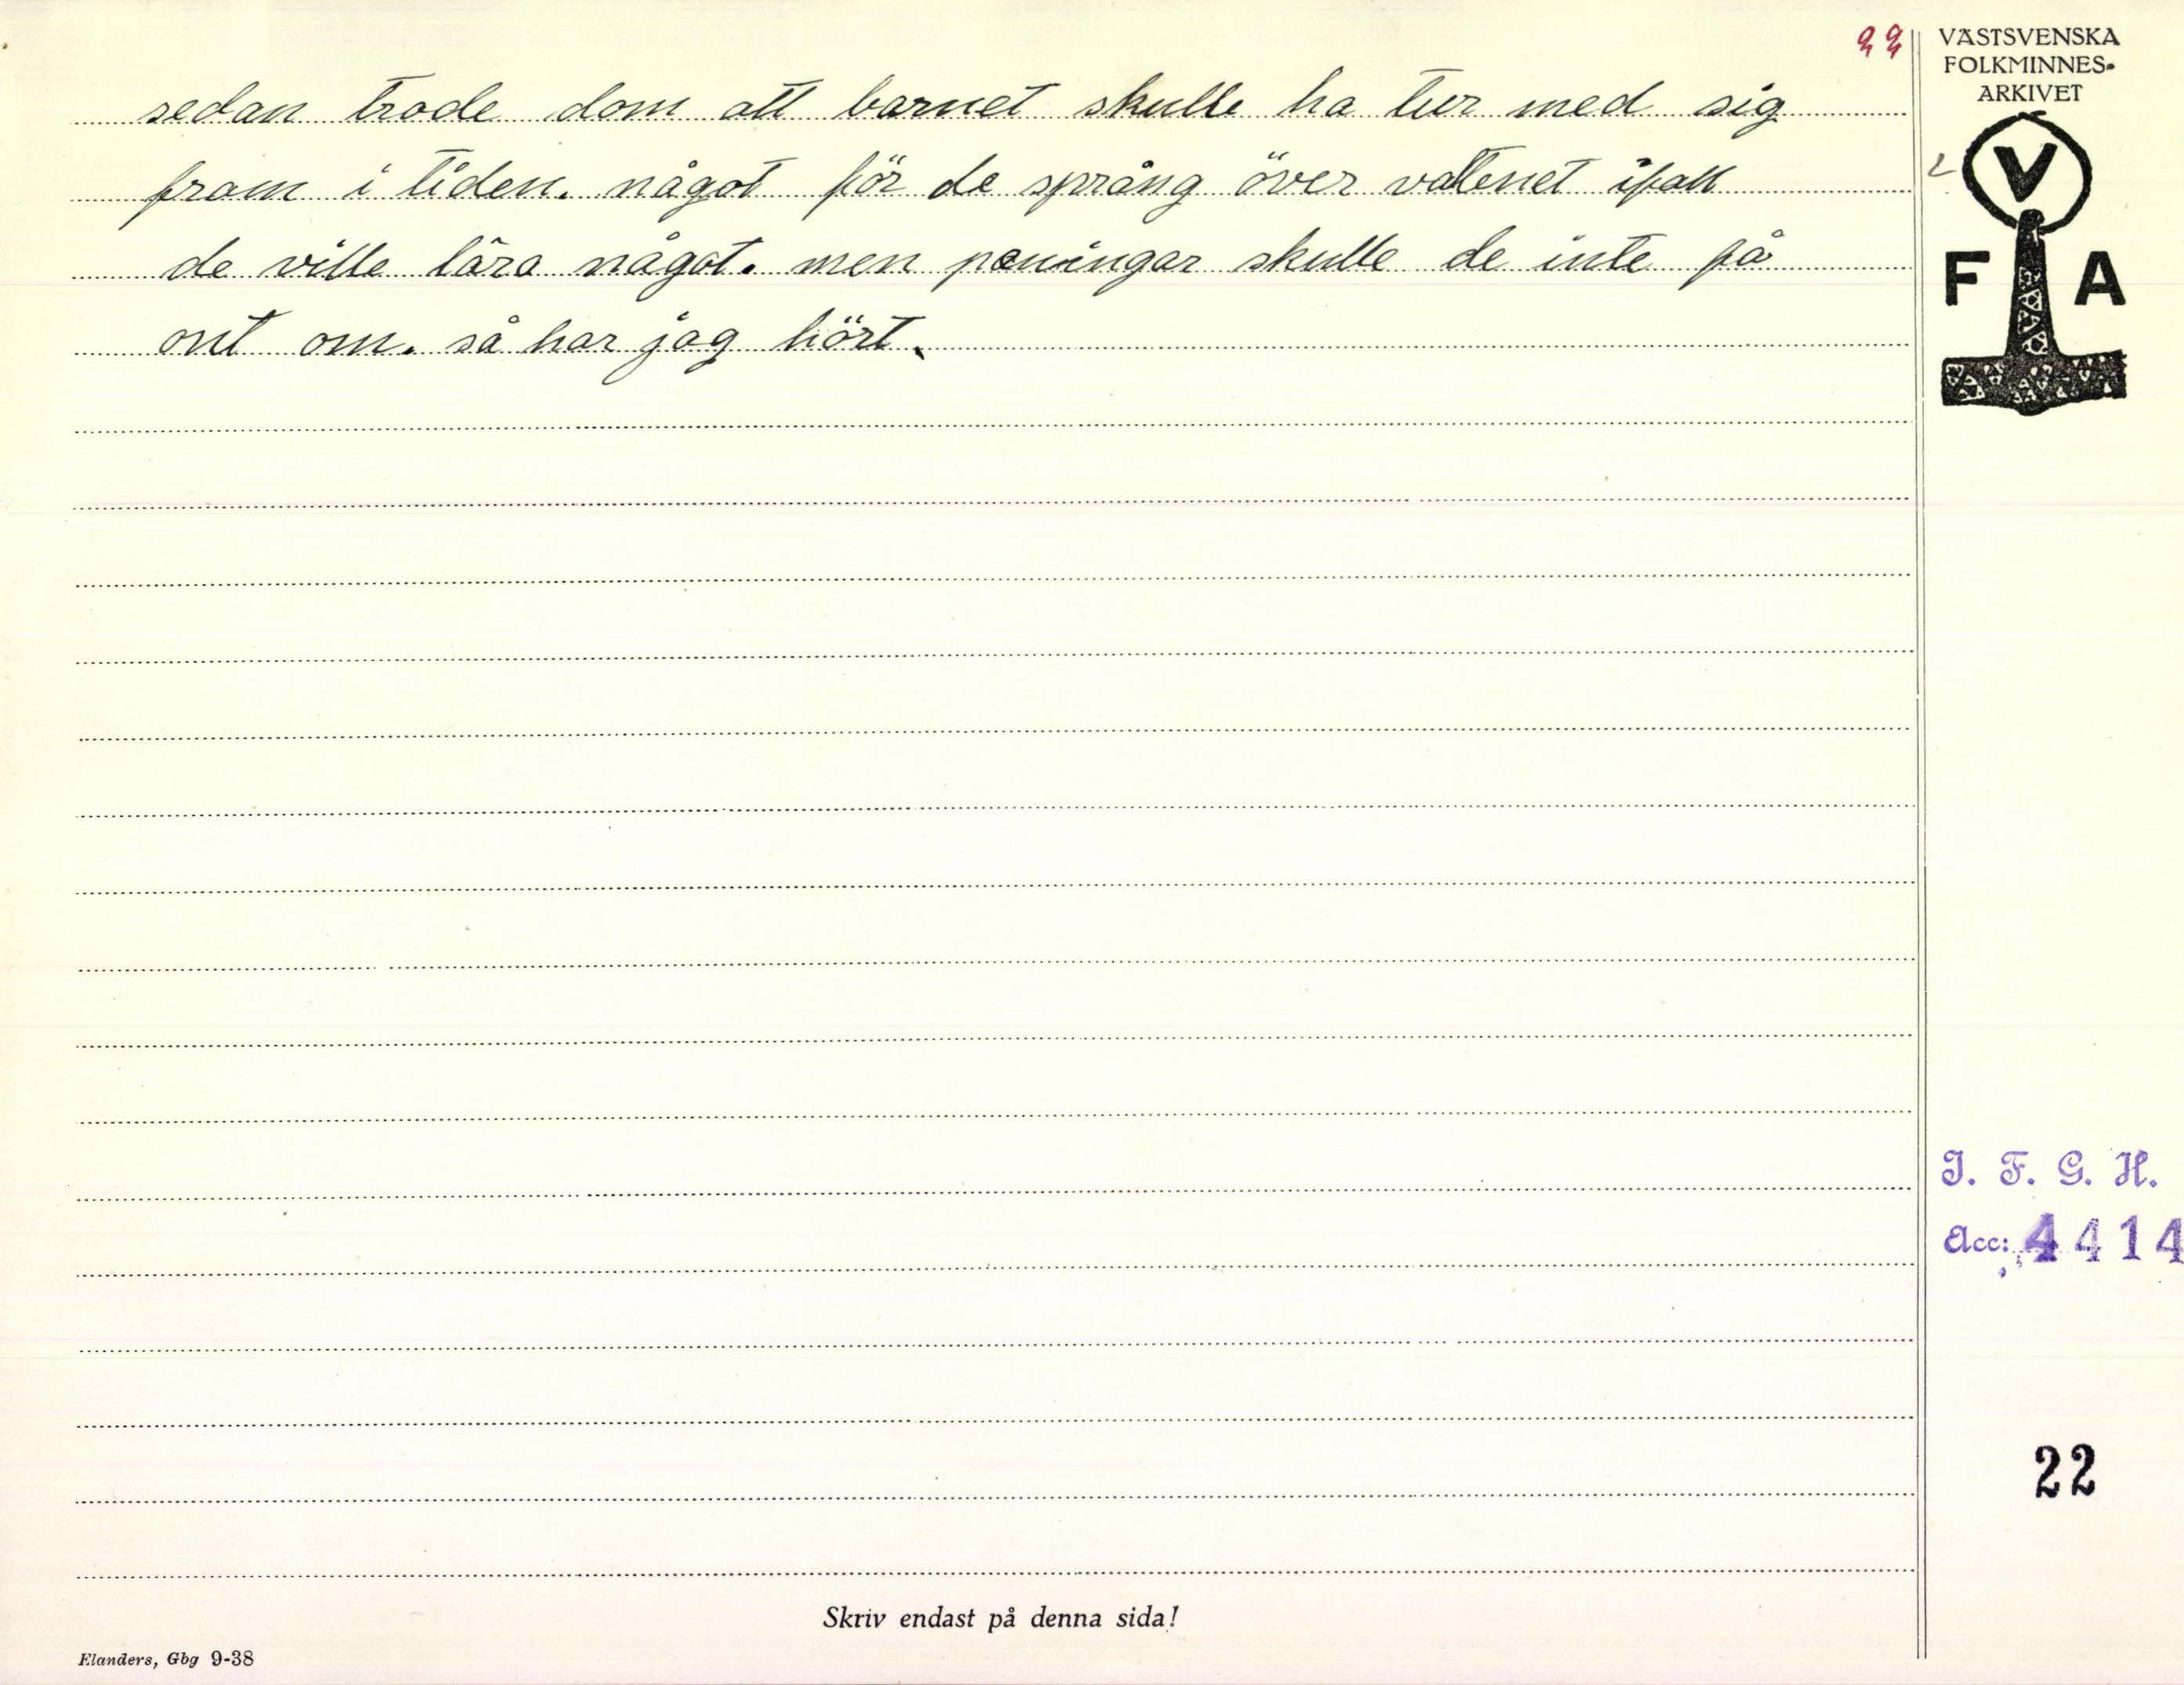 22
VÄSTSVENSKA
FOLKMINNES-
ARKIVET
V
F A
sedan trode dom att barnet skulle ha tur med sig
fram i tiden. något för de språng över vattenet ifall
de ville lära något. men peningar skulle de inte få
ont om. så har jag hört.
I. F. G. H.
Acc: 4414
22
Skriv endast på denna sida!
Elanders, Gbg 9-38